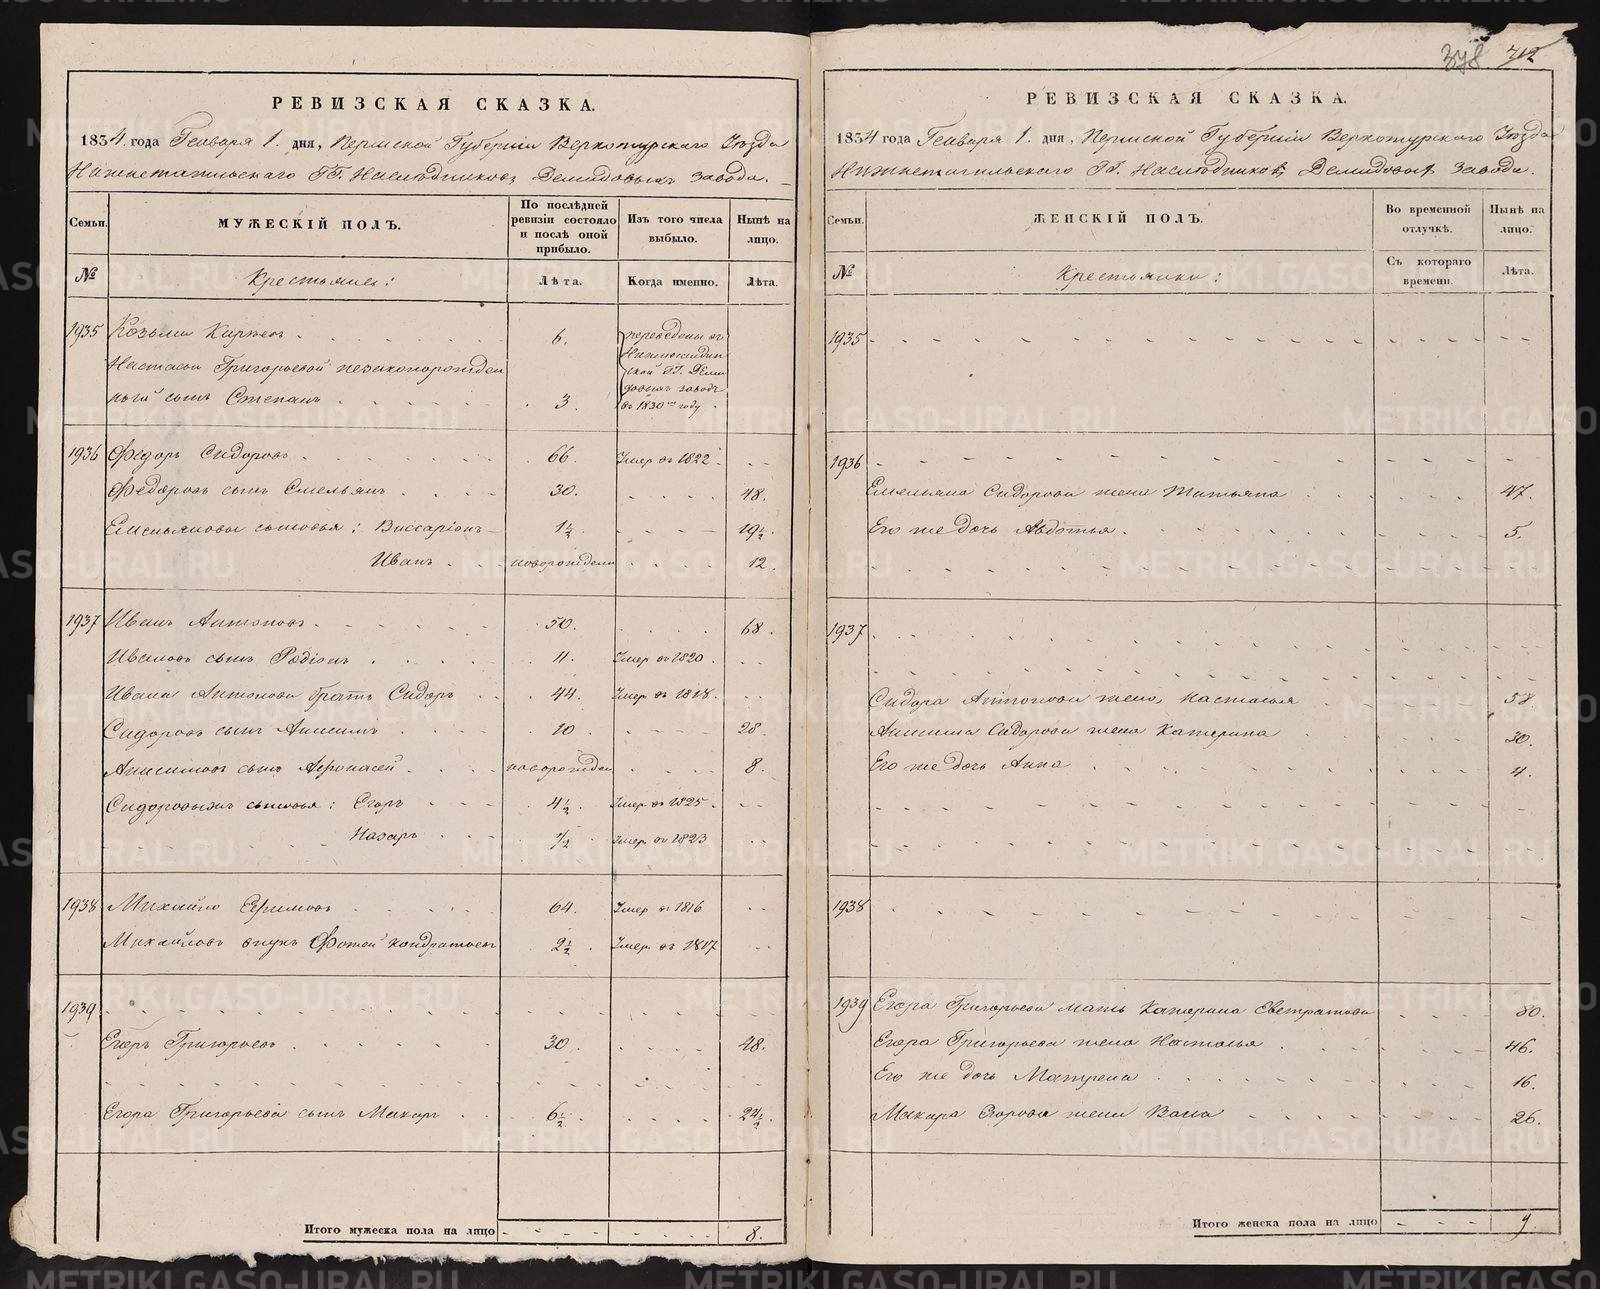 378. 712
РЕВИЗСКАЯ СКАЗКА.
1834 года Генваря 1. дня, Пермской Губернiи Верхотурскаго Уѣзда
Нижнетагильскаго ГГ. Наслѣдниковъ Демидовыхъ завода.
Семьи.
МУЖЕСКIЙ ПОЛЪ.
По послѣдней ревизiи состояло и послѣ оной прибыло.
Изъ того числа выбыло.
Нынѣ на лицо.
№
Крестьяне:
Лѣта.
Когда именно.
Лѣта.
1935 Козьма Карпевъ 6. переведены въ
Нижносалдин
Настасьи Григорьевой незаконорожден ской ГГ. Деми
довыхъ заводъ
ный сынъ Степанъ 3. въ 1830мъ году.
1936 Федоръ Сидоровъ 66. Умер въ 1822.
Федоровъ сынъ Емельянъ 30. 48.
Емельяновы сыновья: Виссарiонъ 1½ 19½.
Иванъ новорожденн 12.
1937 Иванъ Антоновъ 50. 68.
Ивановъ сынъ Родiонъ 4. Умер въ 1820.
Ивана Антонова братъ Сидоръ 44. Умер въ 1818.
Сидоровъ сынъ Анисимъ 10 28.
Анисимовъ сынъ Афонасей новорожден 8.
Сидоровыхъ сыновья: Егоръ 4½. Умер въ 1825.
Назаръ ½. Умер въ 1823
1938 Михайло Ефимовъ 64. Умер въ 1816
Михайловъ внукъ Фотей Кондратьевъ 2½. Умер въ 1817
1939.
Егоръ Григорьевъ 30. 48.
Егора Григорьева сынъ Макаръ 6½ 24½.
Итого мужеска пола на лицо 8.
РЕВИЗСКАЯ СКАЗКА.
1834 года Генваря 1. дня, Пермской Губернiи Верхотурскаго Уѣзда
Нижнетагильскаго ГГ. Наслѣдниковъ Демидовыхъ завода.
Семьи.
ЖЕНСКIЙ ПОЛЪ.
Во временной отлучкѣ.
Нынѣ на лицо.
№
Крестьянки:
Съ котораго времени.
Лѣта.
1935
1936
Емельяна Сидорова жена Татьяна 47.
Его же дочь Авдотья 5.
1937
Сидора Антонова жена Настасья 58.
Анисима Сидорова жена Катерина 30.
Его же дочь Анна 4.
1938
1939 Егора Григорьева мать Катерина Евстратова 80.
Егора Григорьева жена Настасья 46.
Его же дочь Матрена 16.
Макара Егорова жена Васа 26.
Итого женска пола на лицо 9.
METRIKI.GASO-URAL.RU